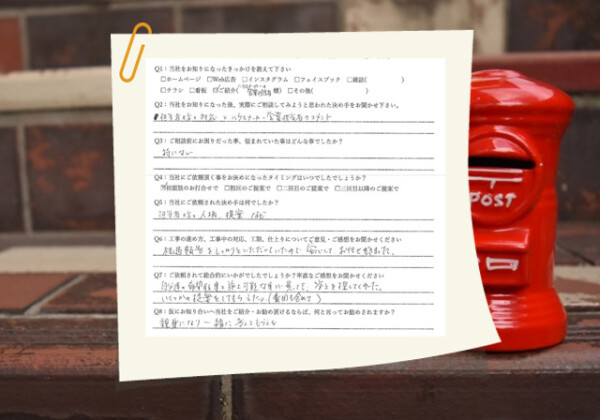 Q1：当社をお知りになったきっかけを教えて下さい
□ホームページ □Web広告 □インスタグラム □フェイスブック □雑誌( )
□チラシ □看板 ご紹介( 営業担当者 様) □その他( )
Q2：当社をお知りになった後、実際にご相談してみようと思われた決め手をお聞かせ下さい。
担当者様の対応と 営業担当者のコメント
Q3：ご相談前にお困りだった事、悩まれていた事はどんな事でしたか？
特になし
Q4：当社にご依頼頂く事をお決めになったタイミングはいつでしたでしょうか？
初面談のお打合せで □初回のご提案で □二回目のご提案で □三回目以降のご提案で
Q5：当社にご依頼された決め手は何でしたか？
担当者様の人柄、提案
Q6：工事の進め方、工事中の対応、工期、仕上りについてご意見・ご感想をお聞かせください
をしっかりといただいていたので 安心して お任せ出来ました。
Q7：ご依頼されて総合的にいかがでしたでしょうか？率直なご感想をお聞かせください
いくつかの提案をしてもらえた。(費用も含めて)
Q8：仮にお知り合いへ当社をご紹介・お勧め頂けるならば、何と言ってお勧めされますか？
親身になり一緒に考えてもらえる
POST